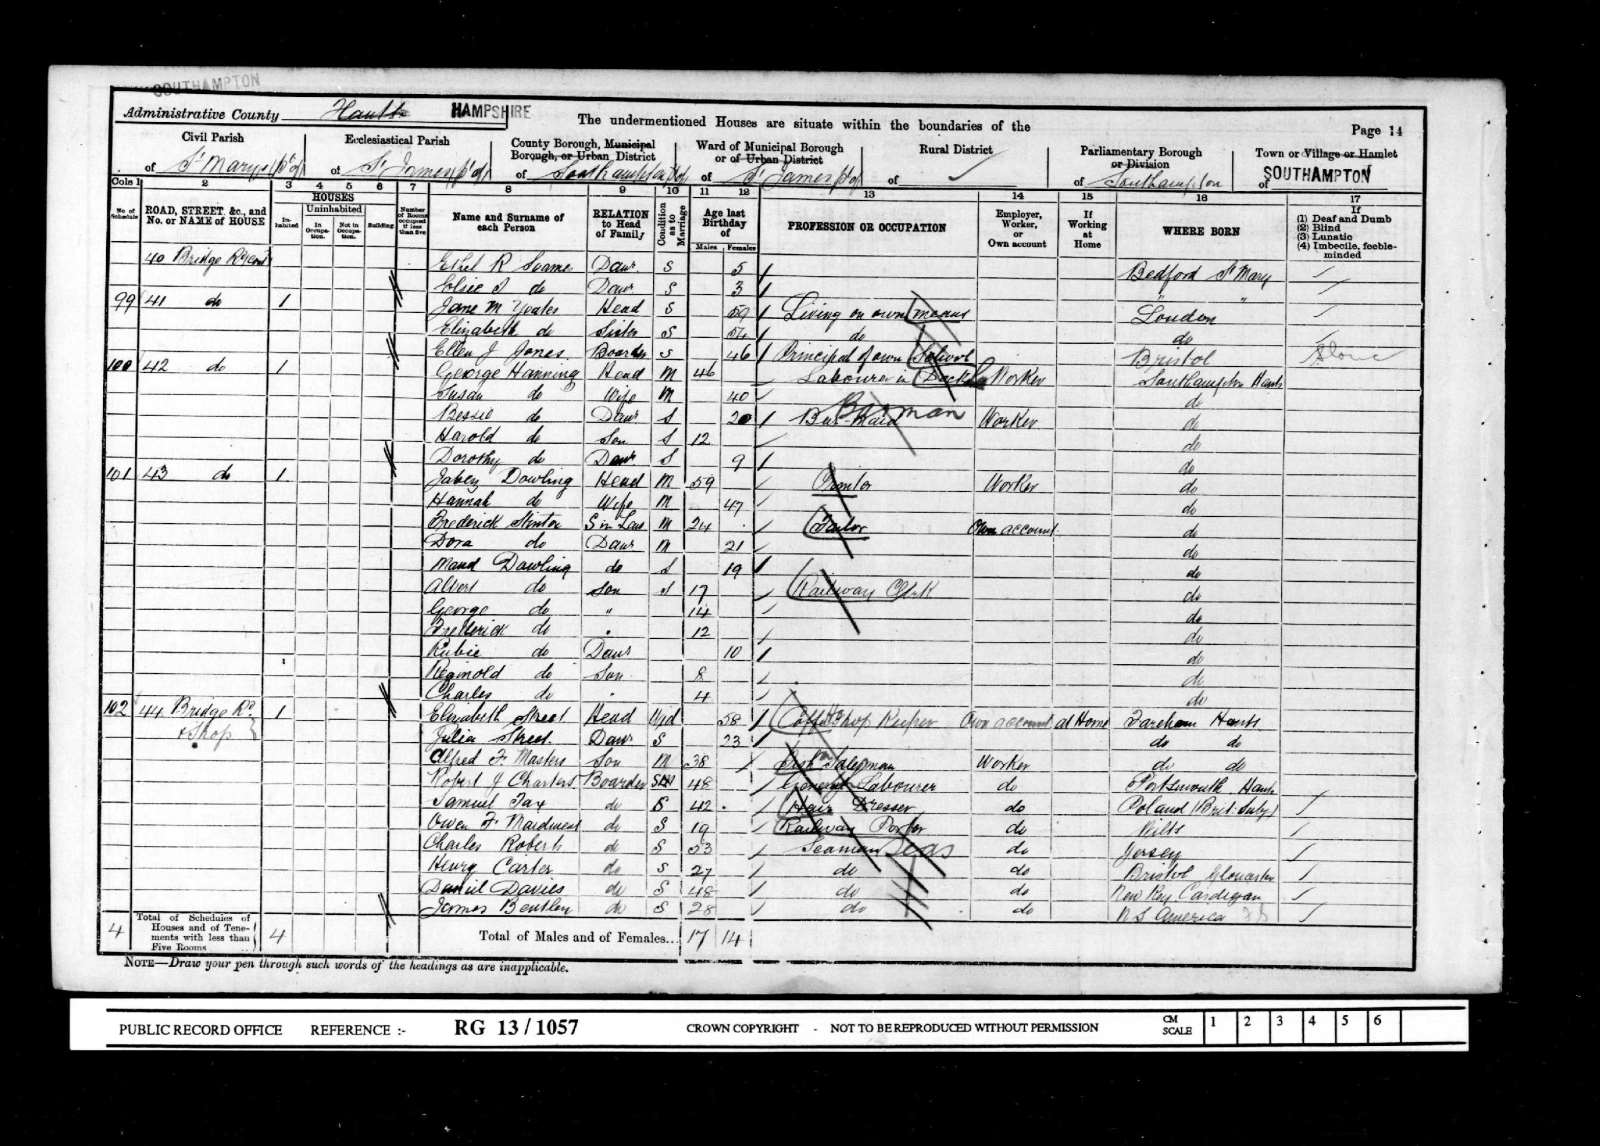 SOUTHAMPTON
Administrative County Hants HAMPSHIRE The undermentioned Houses are situate within the boundaries of the Page 14
Civil Parish Ecclesiastical Parish County Borough, Municipal Borough, or Urban District Ward of Municipal Borough or of Urban District Rural District Parliamentary Borough or Division Town or Village or Hamlet
of St Marys pt of of St James pt of of Southampton pt of of St James pt of of of Southampton of SOUTHAMPTON
Cols 1 2 3 4 5 6 7 8 9 10 11 12 13 14 15 16 17
No of Schedule ROAD, STREET, &c., and No. or NAME of HOUSE HOUSES Inhabited Uninhabited In Occupation. Not in Occupation. Building Number of Rooms occupied if less than five Name and Surname of each Person RELATION to Head of Family Condition as to Marriage Age last Birthday of Males Females PROFESSION OR OCCUPATION Employer, Worker, or Own account If Working at Home WHERE BORN If (1) Deaf and Dumb (2) Blind (3) Lunatic (4) Imbecile, feeble-minded
40 Bridge Rd Ethel R Daur S 5 Bedford St Mary
Elsie do Daur S 3 " "
99 41 do 1 Jane M Yeates Head S 59 Living on own means London
Elizabeth do Sister S 54 do do
Ellen J Jones Boarder S 46 Principal of own School Bristol Alone
100 42 do 1 George Hanning Head M 46 Labourer in Docks Worker Southampton Hants
Susan do Wife M 40 do
Bessie do Daur S 20 Bar-Maid Barman Worker do
Harold do Son S 12 do
Dorothy do Daur S 9 do
101 43 do 1 Jabez Dowling Head M 59 Worker do
Hannah do Wife M 47 do
Frederick Stinton S in Law M 24 Tailor Own account do
Dora do Daur M 21 do
Maud Dowling do S 19 do
Albert do Son S 17 Railway Clerk do
George do " 14 do
Frederick do " 12 do
Rubie do Daur 10 do
Reginold do Son 8 do
Charles do " 4 do
102 44 Bridge Rd & Shop 1 Elizabeth Street Head Wid 58 Coffee Shop Keeper Own account at Home Fareham Hants
Julia Street Daur S 23 do do
Alfred F Masters Son M 38 Fish Salesman Worker do do
Robert J Charters Boarder 48 General Labourer do Portsmouth Hants
Samuel Tax do S 42 Hair Dresser do Poland (Brit. Subj)
Owen F Maidment do S 19 Railway Porter do Wilts
Charles Roberts do S 23 Seaman Seas do Jersey
Henry Carter do S 27 do do Bristol Gloucester
Daniel Davies do S 48 do do New Key Cardigan
James Bentley do S 28 do do N S America
4 Total of Schedules of Houses and of Tenements with less than Five Rooms 4 Total of Males and of Females... 17 14
NOTE—Draw your pen through such words of the headings as are inapplicable.
PUBLIC RECORD OFFICE REFERENCE :- RG 13 / 1057 CROWN COPYRIGHT - NOT TO BE REPRODUCED WITHOUT PERMISSION CM SCALE 1 2 3 4 5 6